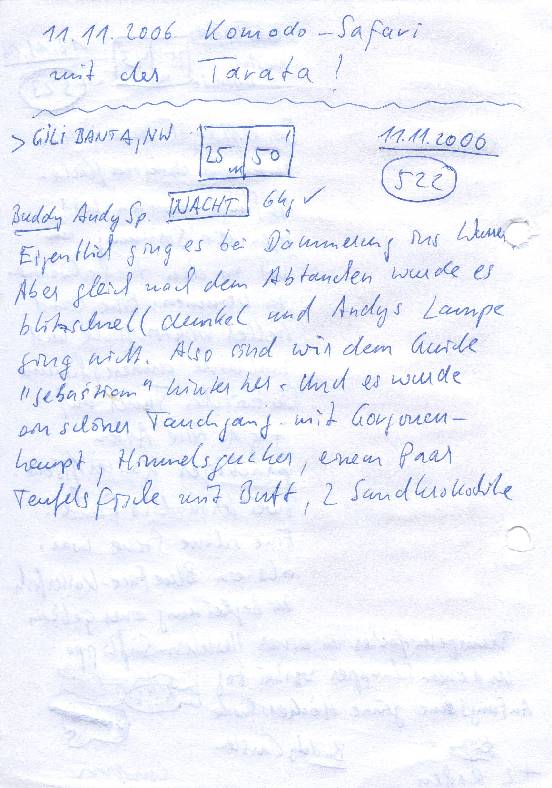 11.11.2006 Komodo-Safari
mit der Tarata!
> GILI BANTA, NW
25m 50'
11.11.2006
522
Buddy Andy Sp. NACHT 6kg ✓
Eigentlich ging es bei Dämmerung ins Wasser
Aber gleich nach dem Abtauchen wurde es
blitzschnell dunkel und Andys Lampe
ging nicht. Also sind wir dem Guide
"Sebastian" hinterher. Und es wurde
ein schöner Tauchgang mit Gorgonen-
haupt, Himmelsgucker, einem Paar
Teufelsfische mit Butt, 2 Sandkrokodile